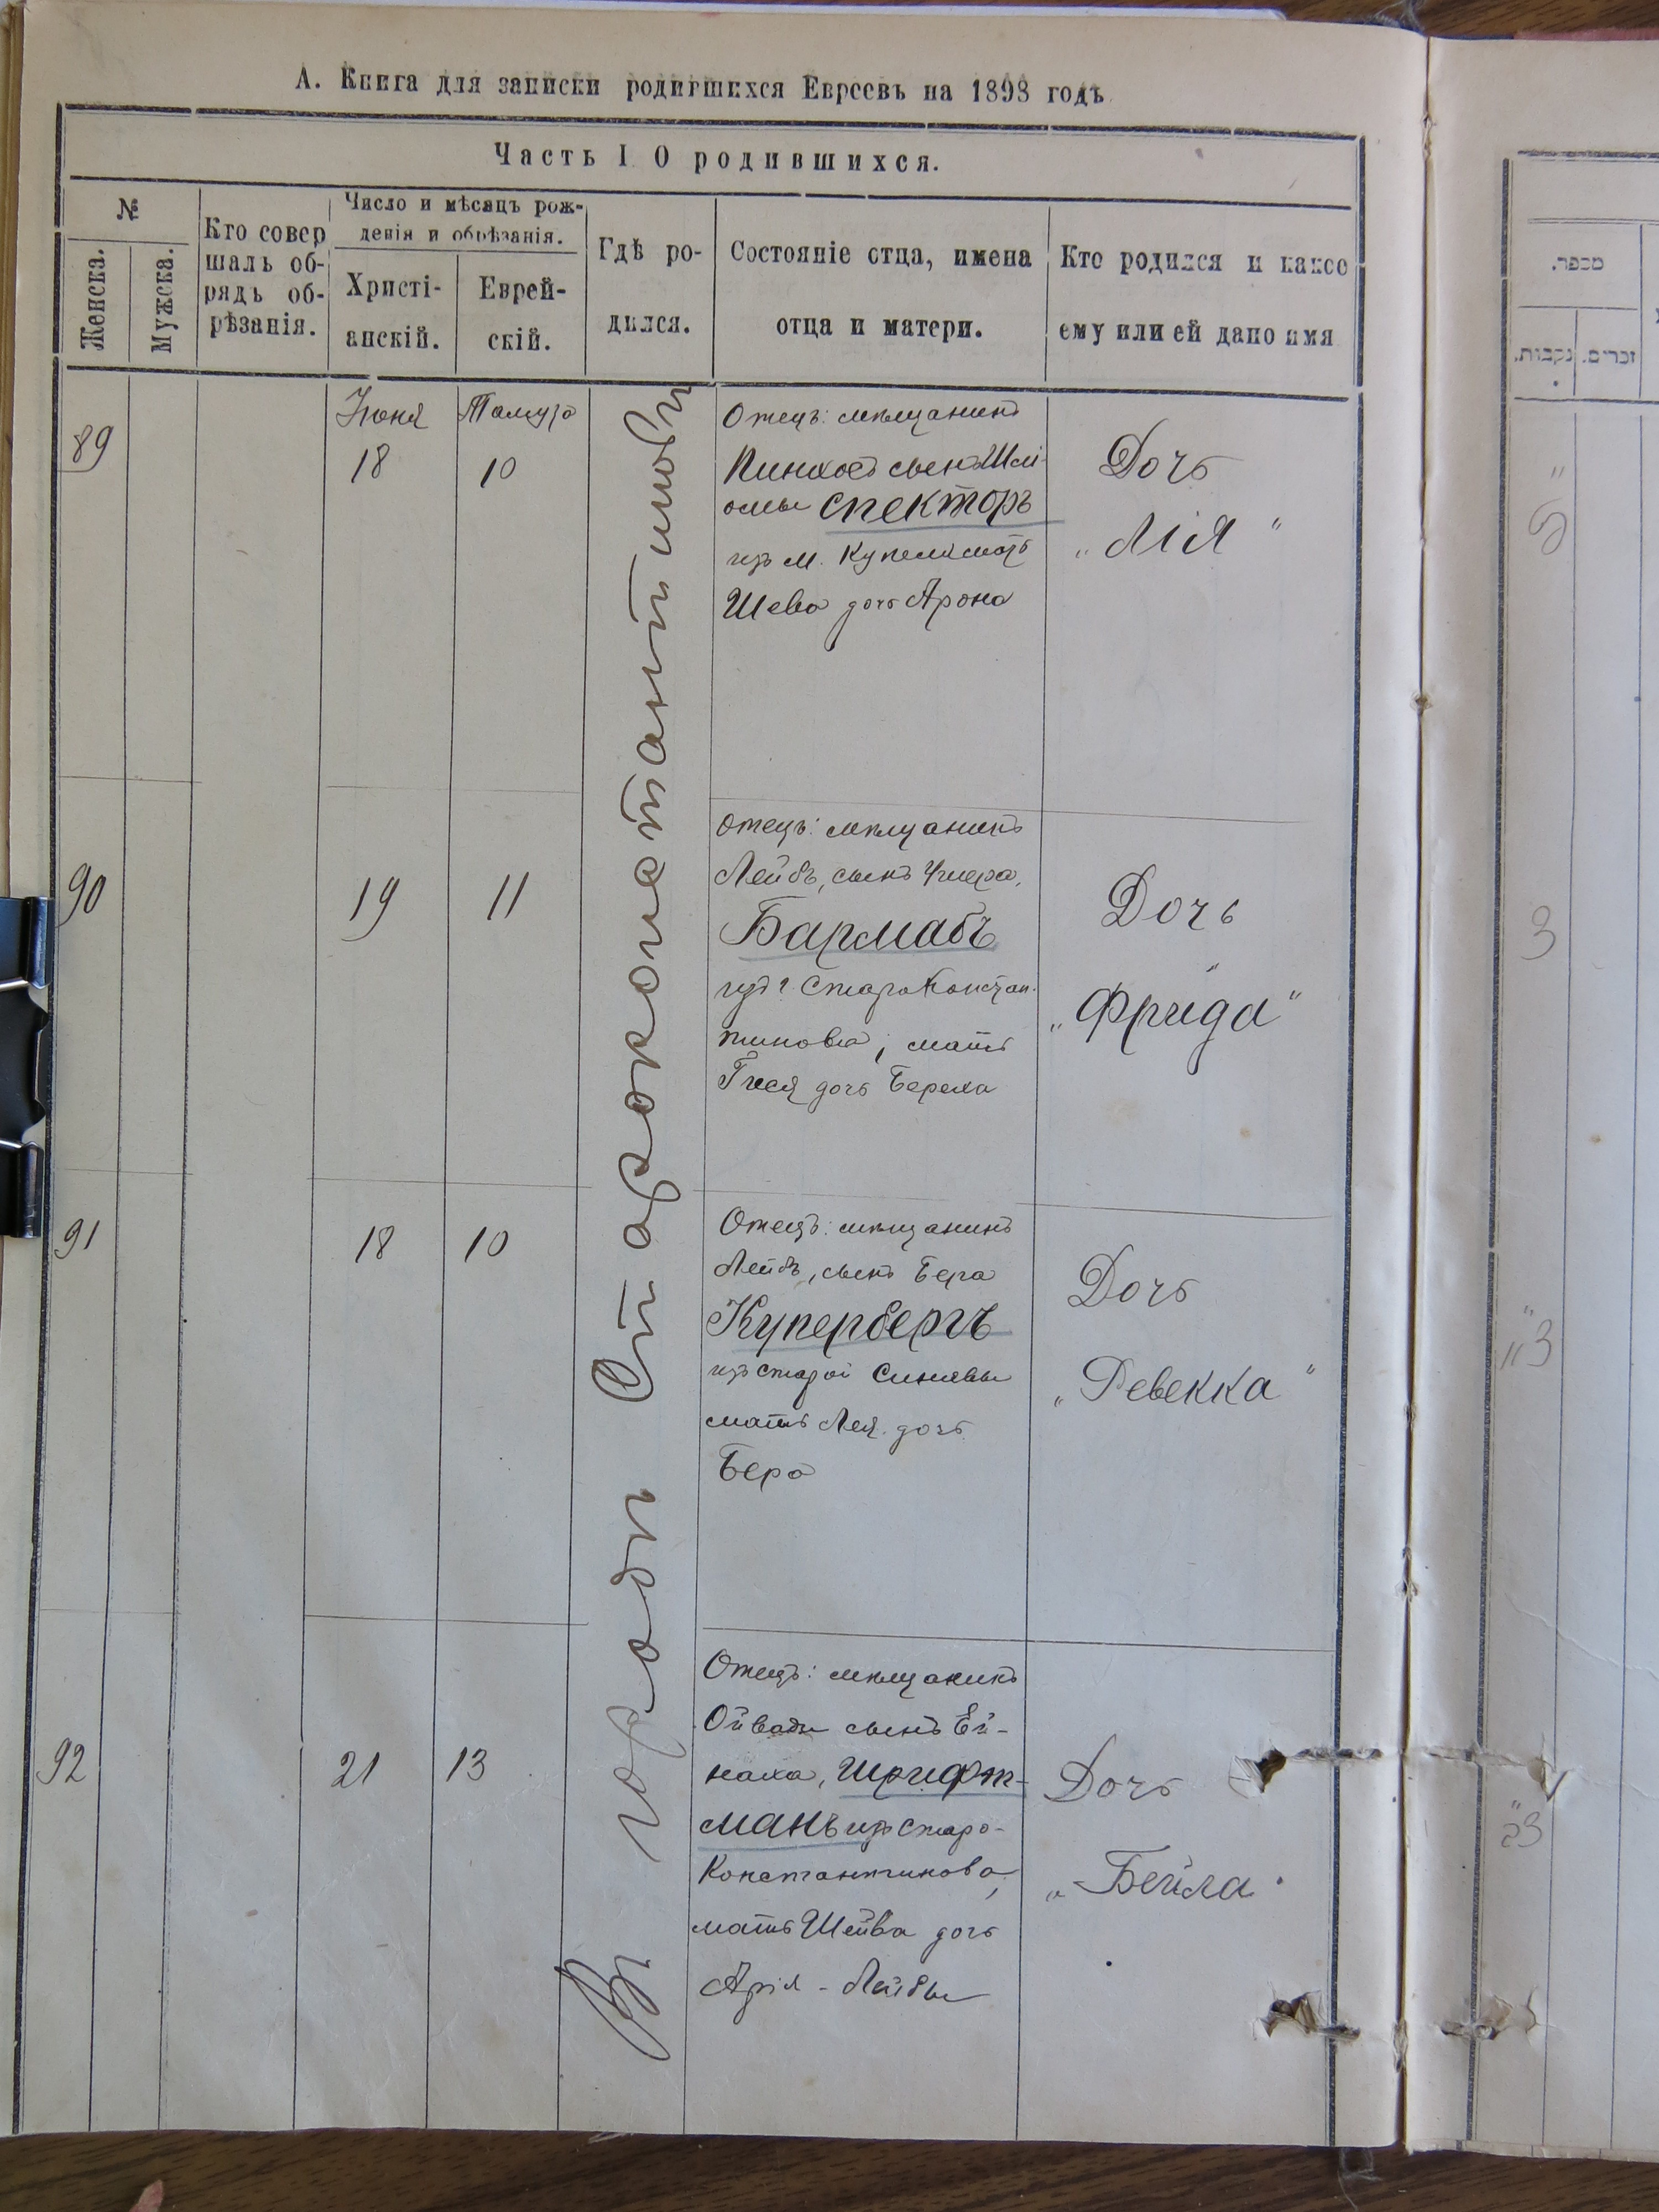 А. Книга для записки родившихся Евреевъ на 1898 годъ
Часть I О родившихся.
№
Женска.
Мужска.
Кто совер
шалъ об-
рядъ об-
рѣзанія.
Число и мѣсяцъ рож-
денія и обрѣзанія.
Христі-
анскій.
Еврей-
скій.
Гдѣ ро-
дился.
Состояніе отца, имена
отца и матери.
Кто родился и какое
ему или ей дано имя
Въ городѣ Староконстантиновѣ
89
Іюня
18
Тамуза
10
Отецъ: мѣщанинъ
Пинхосъ сынъ Шлі-
омы Спекторъ
изъ м. Купеля мать
Шева дочь Арона
Дочь
„Лія"
90
19
11
Отецъ: мѣщанинъ
Лейбъ, сынъ
Бармабъ
изъ г. Староконстан-
тинова; мать
Гися дочь Береха
Дочь
„Фрида"
91
18
10
Отецъ: мѣщанинъ
Лейбъ, сынъ Бера
Купербергъ
изъ Старой Синявы
мать Лея дочь
Бера
Дочь
„Ревекка"
92
21
13
Отецъ: мѣщанинъ
сынъ Ей-
наха, Шрифт-
манъ изъ Старо-
Константинова,
мать Шейва дочь
Арія-Лейбы
Дочь
„Бейла"
מספר.
נקבות.
זכרים.